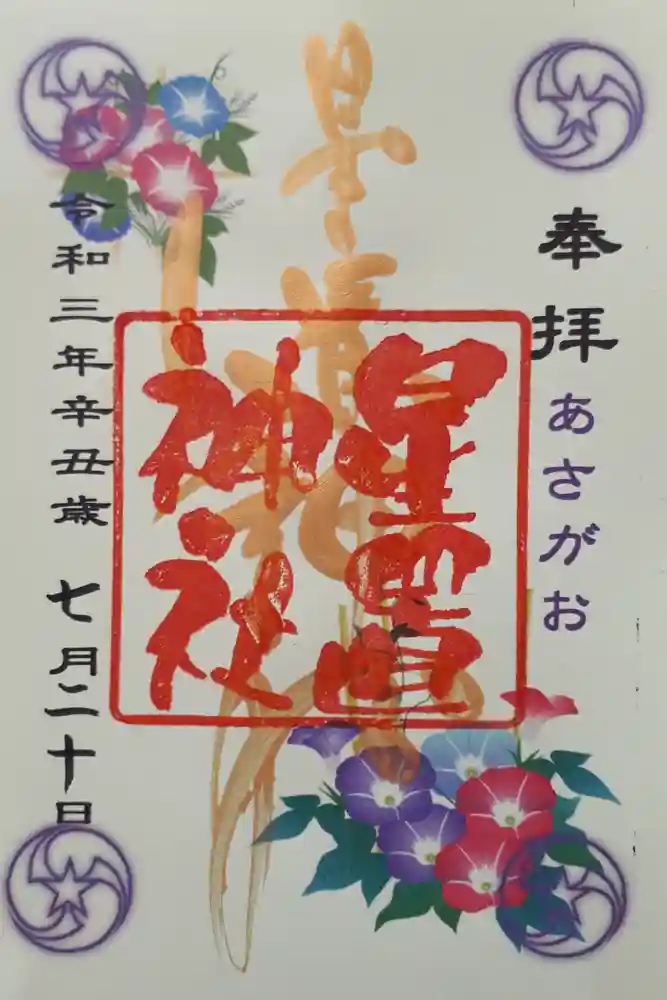 奉拝 あさがお
星置
神社
令和三年辛丑歳 七月二十日